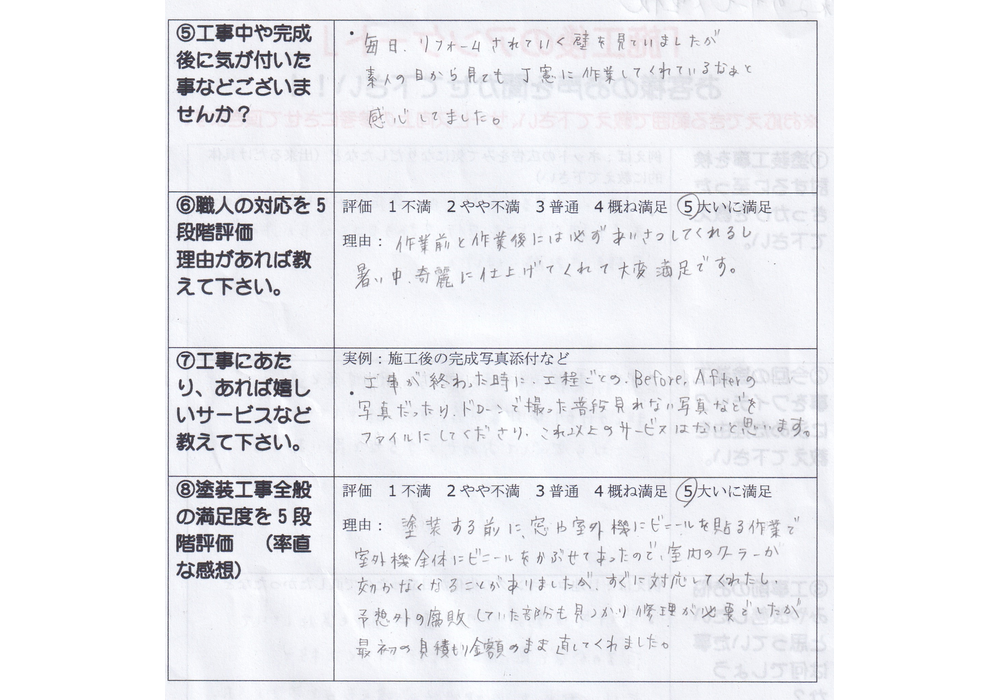 ⑤工事中や完成
後に気が付いた
事などございま
せんか？
・毎日、リフォームされていく壁を見ていましたが
素人の目から見ても丁寧に作業してくれているなぁと
感心してました。
⑥職人の対応を5
段階評価
理由があれば教
えて下さい。
評価 1不満 2やや不満 3普通 4概ね満足 ⑤大いに満足
理由：作業前と作業後には必ずあいさつしてくれるし
暑い中、奇麗に仕上げてくれて大変満足です。
⑦工事にあた
り、あれば嬉し
いサービスなど
教えて下さい。
実例：施工後の完成写真添付など
・工事が終わった時に、工程ごとの、Before, Afterの
写真だったり、ドローンで撮った普段見れない写真などを
ファイルにしてくださり、これ以上のサービスはないと思います。
⑧塗装工事全般
の満足度を5段
階評価 （率直
な感想）
評価 1不満 2やや不満 3普通 4概ね満足 ⑤大いに満足
理由：塗装する前に、窓や室外機にビニールを貼る作業で
室外機全体にビニールをかぶせてあったので、室内のクーラーが
効かなくなることがありましたが、すぐに対応してくれたし、
予想外の腐敗していた部分も見つかり修理が必要でしたが
最初の見積もり金額のまま直してくれました。